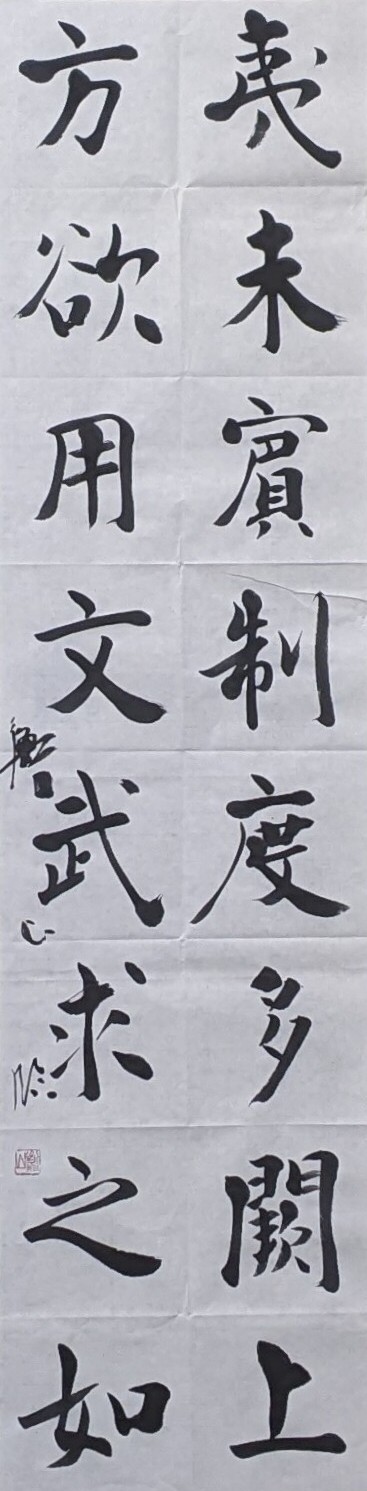 夷未賓制度多闕上
方欲用文武求之如